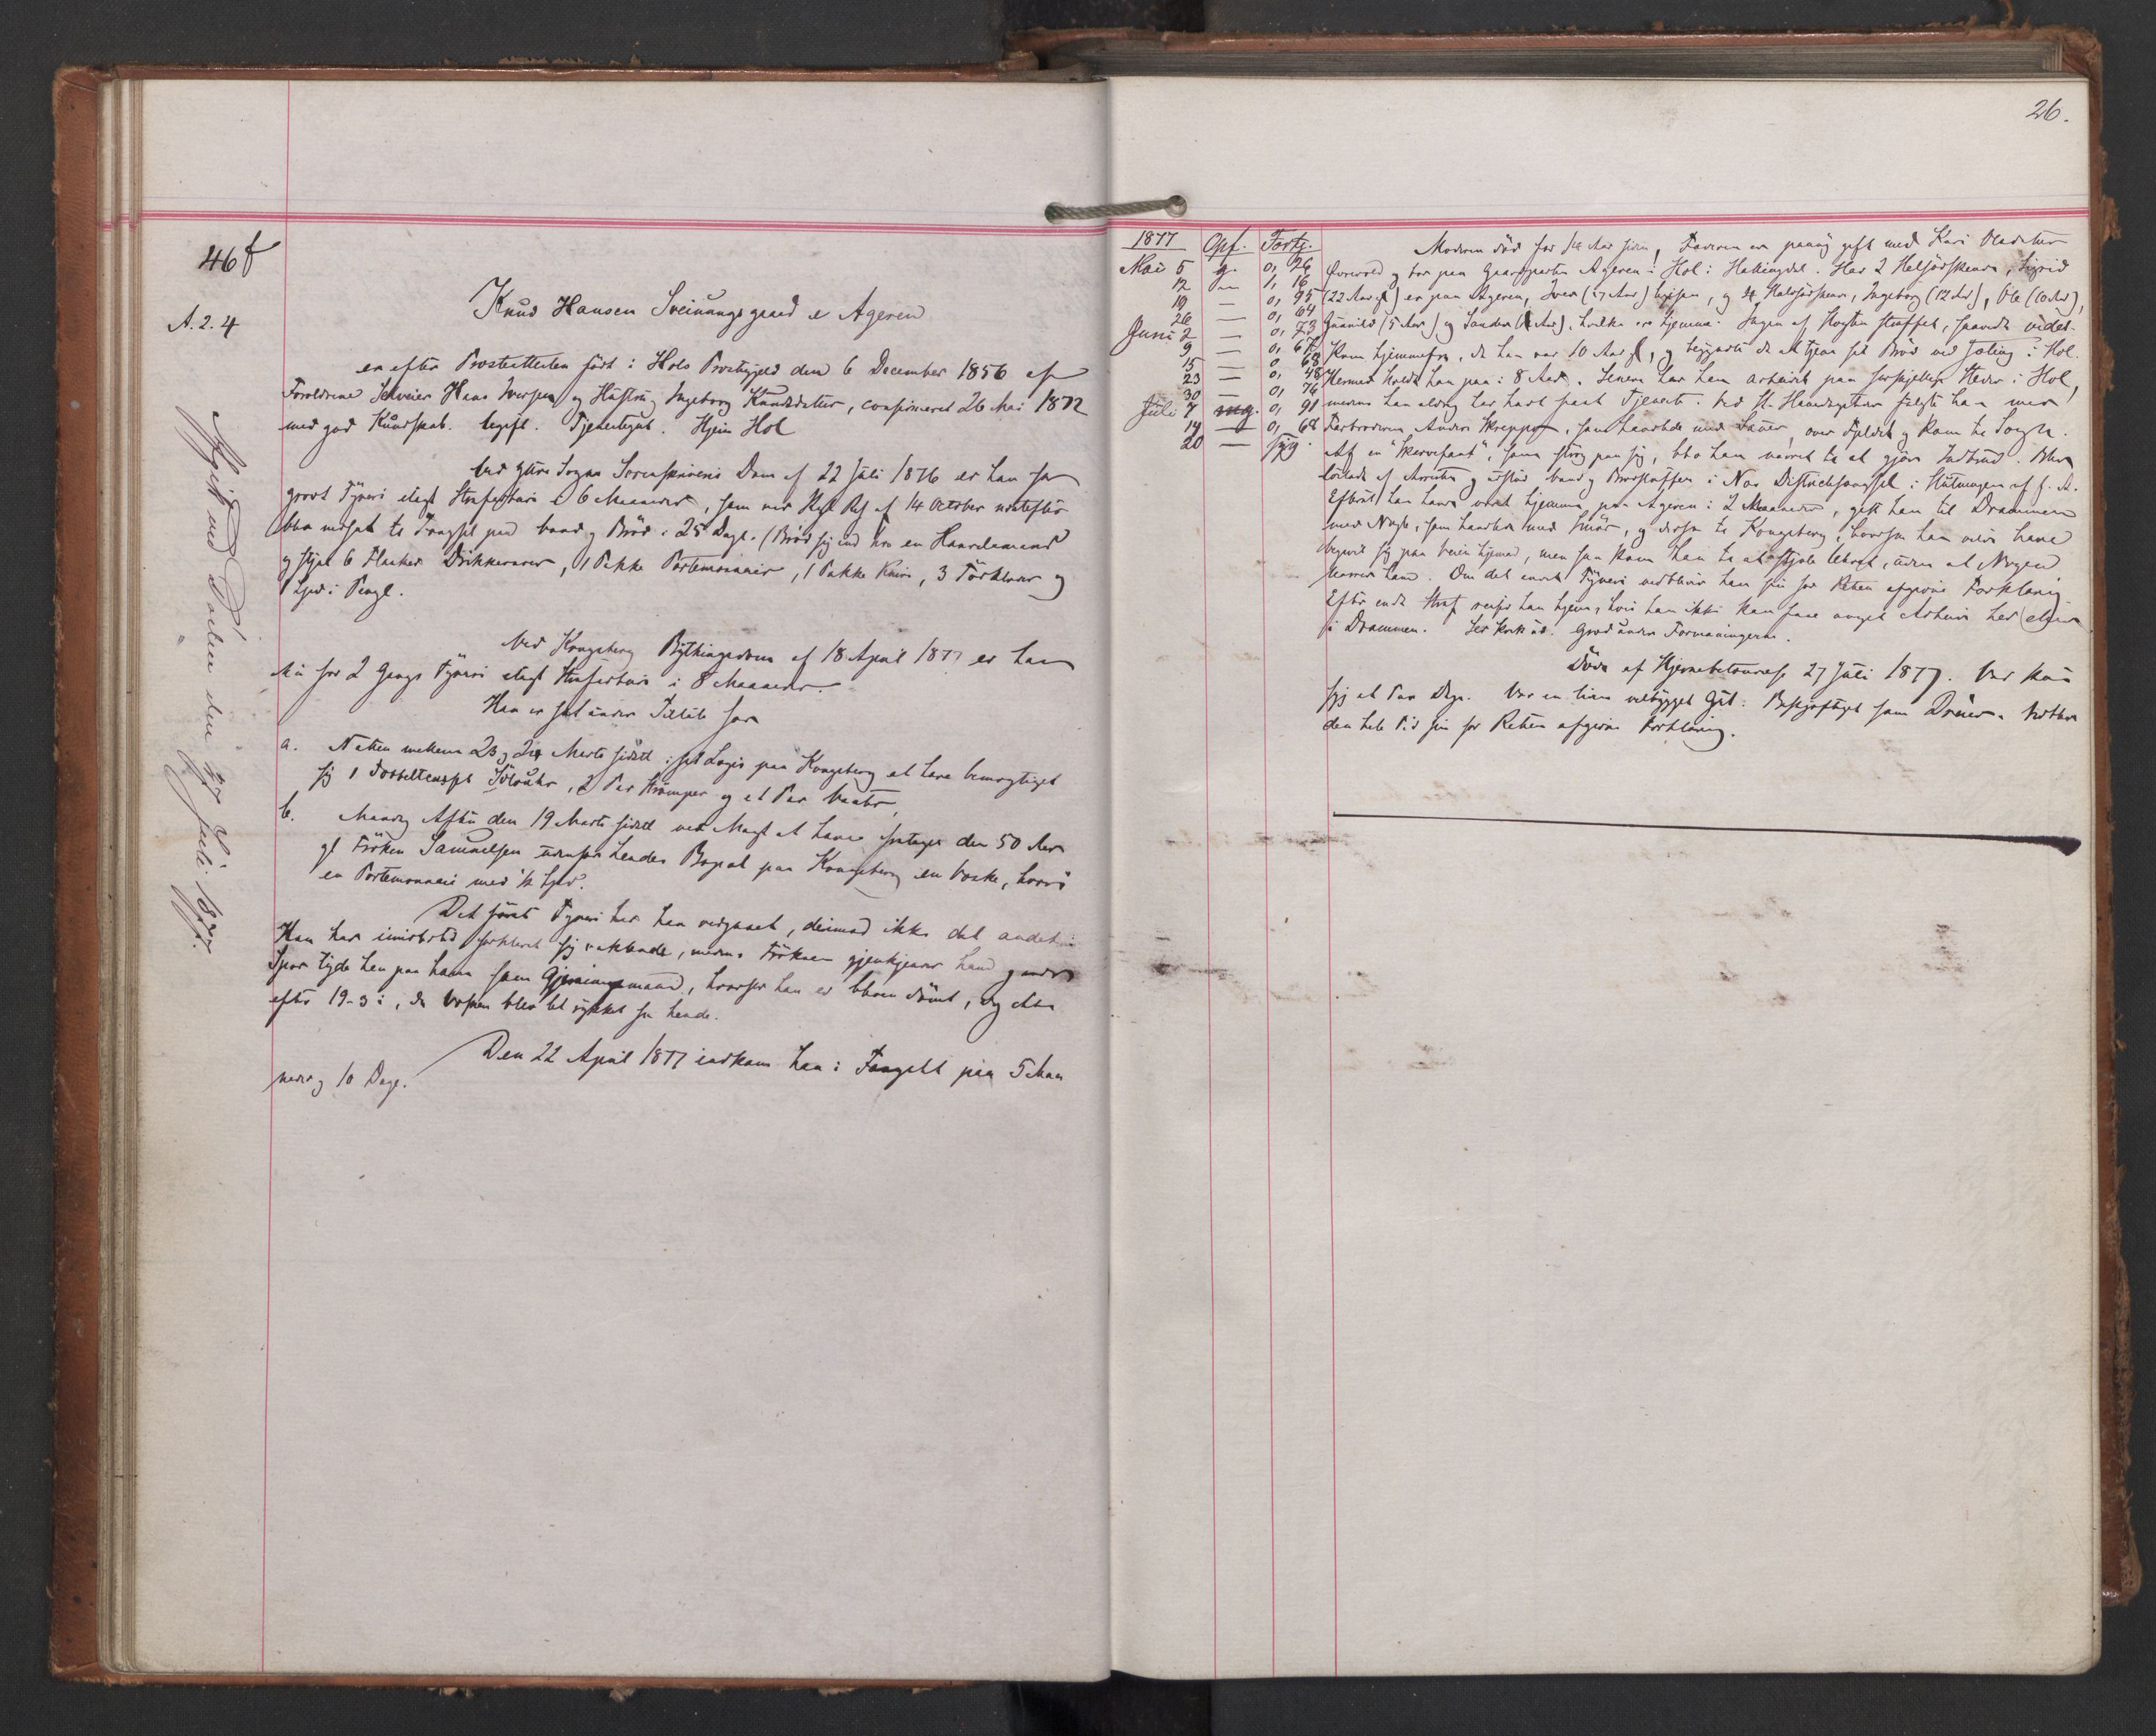 46 f
A. 2. 4
Afgik ved Døden den 27 Juli 1877.
Knud Hansen Sveinungsgaard e Ageren
er efter Presteattesten født i Hols Prestegjeld den 6 December 1856 af
Foreldrene Selveier Hans Iversen og Hustru Ingeborg Knudsdatter, confirmeret 26 Mai 1872
med god Kundskab. Ugift. Tjenestegut. Hjem Hol
Ved Ytre Sogns Sorenskriveris Dom af 22 Juli 1876 er han for
grovt Tyveri ilagt Strafarbeide i 6 Maaneder, som ved Kgl Res af 14 October nestefter
blev nedsat til Fængsel paa Vand og Brød i 25 Dage. (Brød sig ind hos en Handelsmand
og stjal 6 Flasker Drikkevarer, 1 Pakke Portemonnaier, 1 Pakke Knive, 3 Tørklæder og
1 Spd i Penge.
Ved Kongsberg Bythingsdom af 18 April 1877 er han
nu for 2 Gangs Tyveri ilagt Strafarbeide i 8 Maaneder.
Han er sat under Tiltale for
a. Natten mellem 23 og 24 Marts sidstl. i sit Logis paa Kongsberg at have bemægtiget
sig 1 Sølvuhr, 2 Par Strømper og et Par Vanter,
b. Mandag Aften den 19 Marts sidstl ved Magt at have frataget den 50 Aar
gl Frøken Samuelsen udenfor hendes Bopæl paa Kongsberg en Veske, hvori
en Portemonnaie med ½ Spd.
Det første Tyveri har han vedgaaet, derimod ikke det andet
Han har imidlertid forklaret sig vaklende, medens Frøknen gjenkjender ham og andre
Spor tyde hen paa ham som Gjerningsmand, hvorfor han er bleven dømt,
efter 19-3 i, da Vesken blev let rykket fra hende.
Den 22 April 1877 indkom han i Fængslet paa 5 Maa
neder og 10 Dage.
26.
1877 Opf. Fortj.
Mai 5 g. 0, 26
12 1, 16
19 — 0, 95
26 — 0, 64
Juni 2 — 0, 73
9 — 0, 67
15 — 0, 68
23 — 0, 48
30 — 0, 76
Juli 7 mg. 0, 91
14 — 0, 68
20 — syg.
Moderen død for 14 Aar siden, Faderen er paany gift med Kari Olsdatter
og bor paa Gaardparten Ageren i Hol i Hallingdal. Har 2 Helsødskende, Sigrid
(22 Aar gl) er paa Ageren, Iver (17 Aar) ligesaa, og 4 Halvsødskende, Ingeborg (12 Aar), Ole (10 Aar),
Gunnild (5 Aar) og Sander ( Aar), hvilke ere hjemme. Ingen af Slegten straffet, saavidt vides.
Kom hjemmefra, da han var 10 Aar gl, og begyndte da at tjene sit Brød ved Gjeting i Hol.
Hermed holdt han paa i 8 Aar. Senere har han arbeidet paa forskjellige Steder i Hol,
medens han aldrig har havt fast Tjeneste. Ved St. Hansdagstider fulgte han med
Farbroderen Anders Skreppen, som handlede med Sauer, over Fjeldet og kom til Sogn.
Af en "Skervefant", som slog paa sig, blev han narret til at gjøre Indbrud. Blev
løsladt af Arresten og udstod Vand og Brødstraffen i Nes Districtsfængsel i Slutningen af f. A.
Efterat han havde været hjemme paa Ageren i 2 Maaneder, gik han til Drammen
med Nogle, som handlede med Smør, og derfra til Kongsberg, hvorfra han vilde have
begivet sig paa Veien hjemad, men saa kom han til at stjæle Uhret, uden at Nogen
narrede ham. Om det andet Tyveri vedbliver han sin for Retten afgivne Forklaring
Efter endt Straf reiser han hjem, hvis han ikke kan faae noget Arbeide her eller
i Drammen. Ser kjæk ud. Græd under Formaningerne.
Døde af Hjernebetændelse 27 Juli 1877. Var kun
syg et Par Dage. Var en liden velbygget Gut. Beskjæftiget som Dreier. Vedblev
den hele Tid sin for Retten afgivne Forklaring.